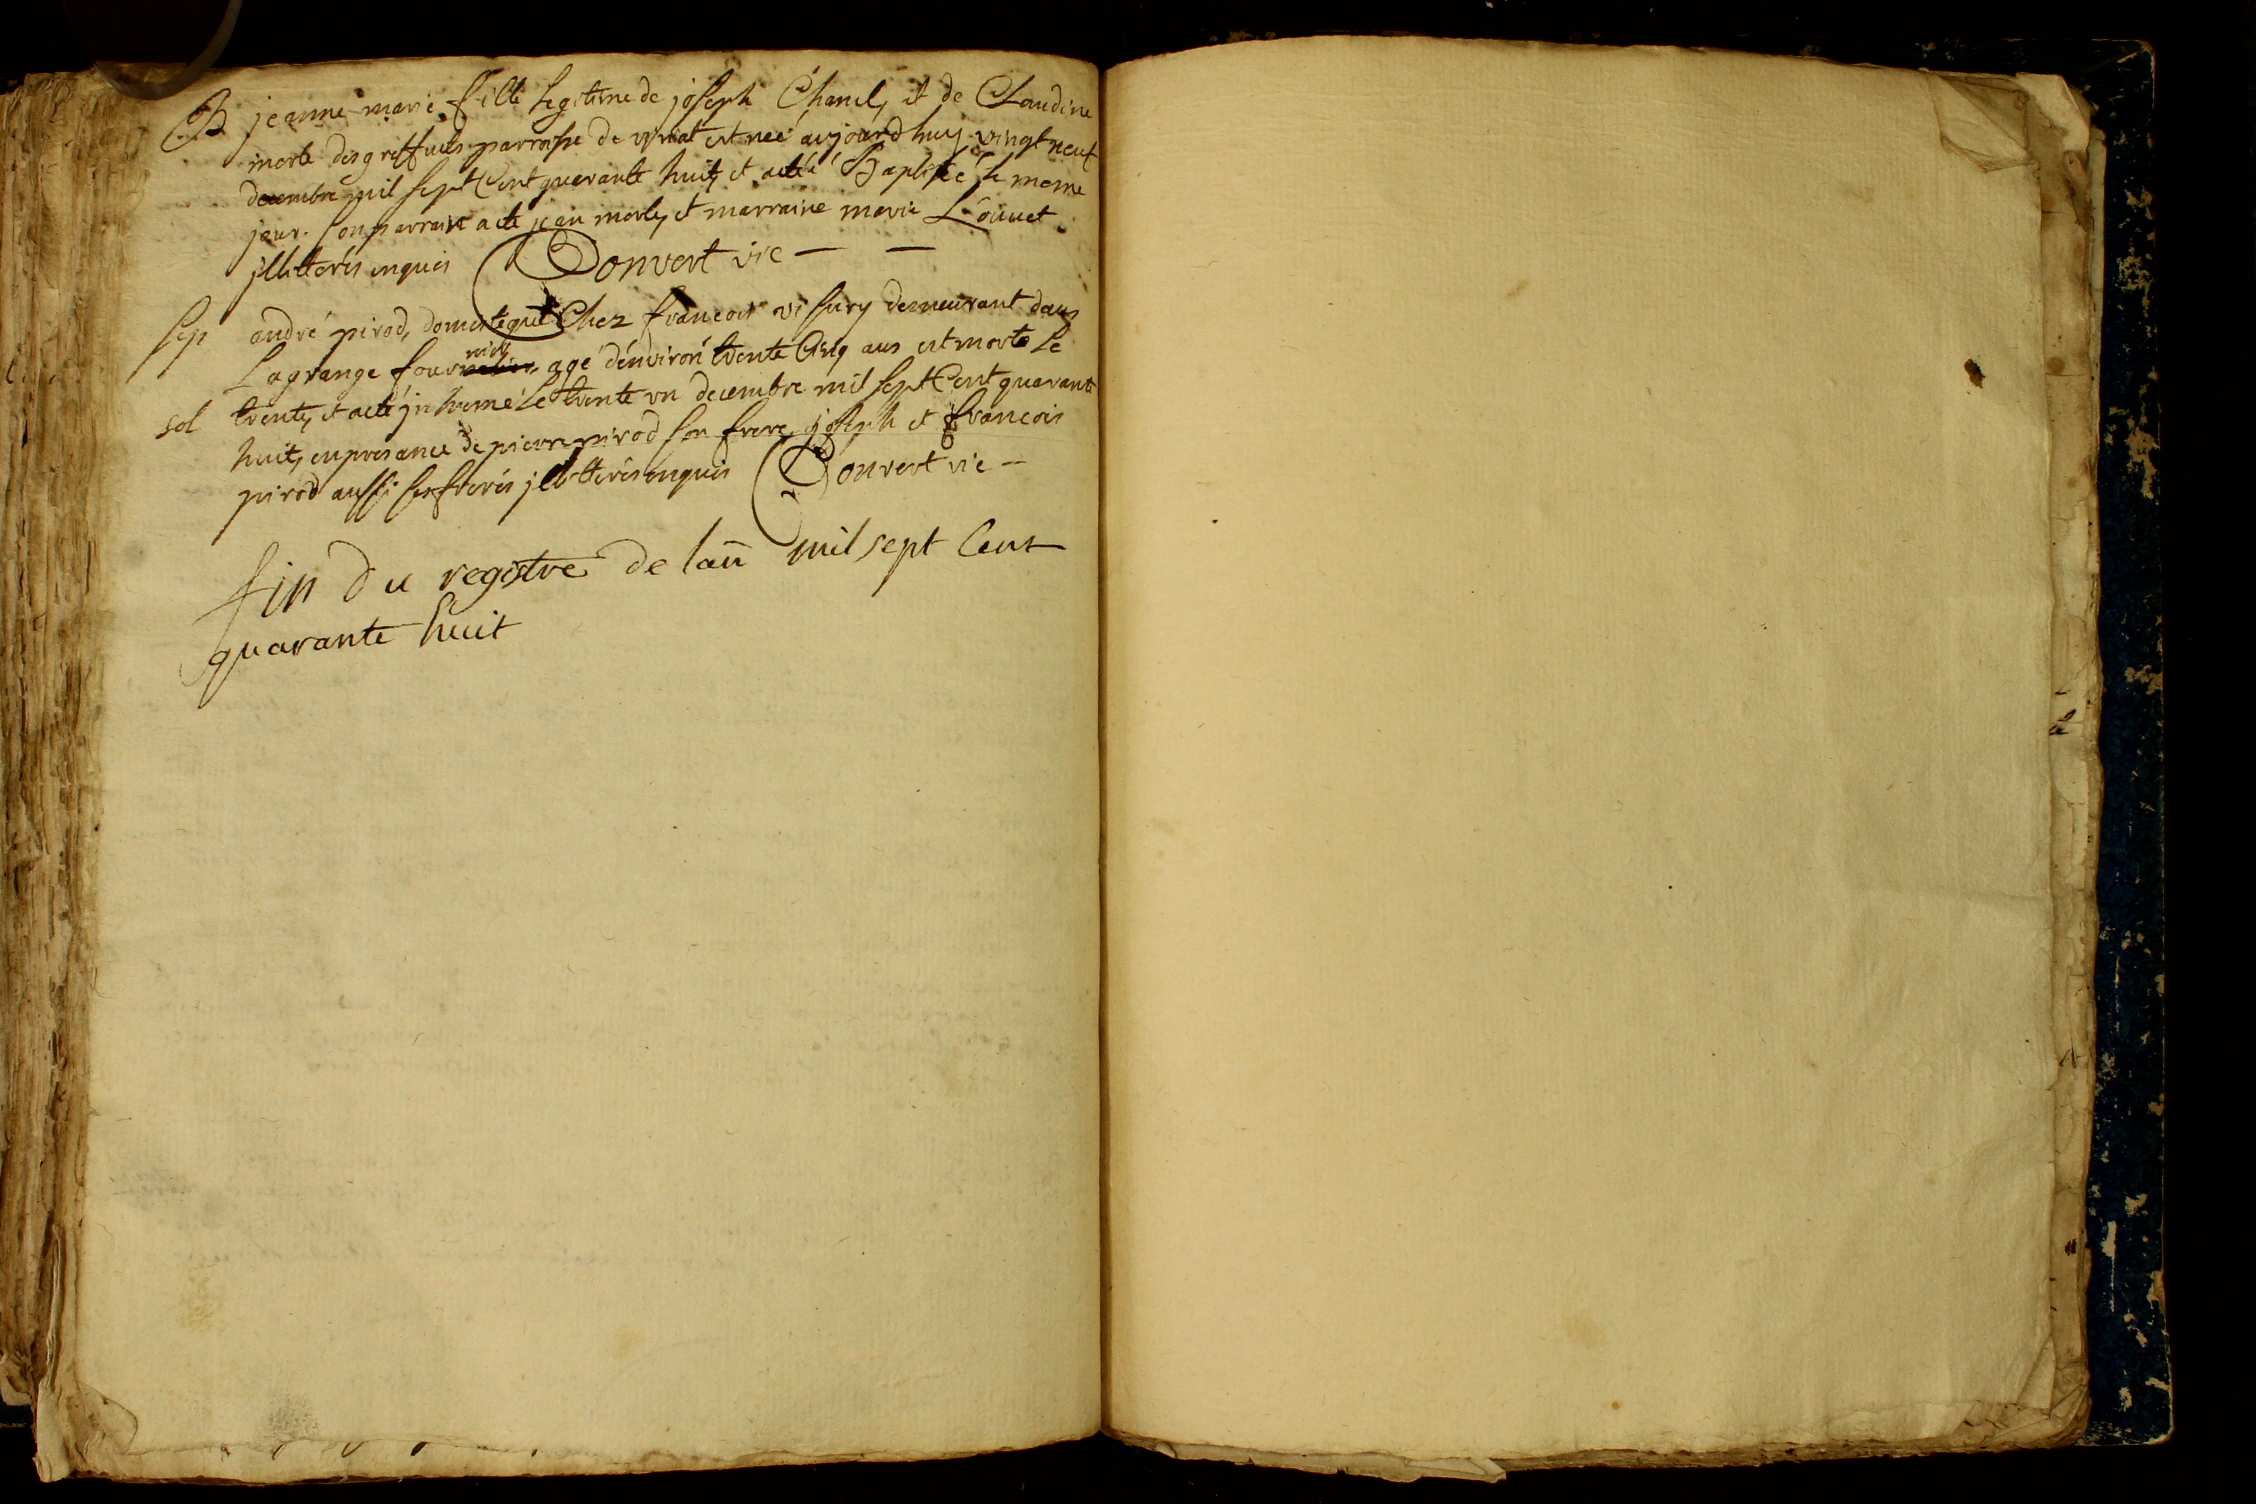 B jeanne marie fille legitime de joseph Chanel, et de Claudine
morle des greffets parroisse de viriat est neé aujourd huy vingt neuf
decembre mil sept Cent quarante huit, et acté Baptisée le meme
jour. son parrain acté jean morle, et marraine marie Louuet
jllitterés enquis Convert vic —  —
sep andré pirod, domestique Chez francois vissury demeurant dans
Lagrange four age denviron trente Cinq ans est morte Le
sol trente, et acté jnhumé Le trente vn decembre mil sept Cent quarante
huit, en presance de pierre pirod son frere, joseph et francois
pirod aussi ses freres jllitterés enquis Convert vic —
fin du registre de lan mil sept Cent
quarante huit